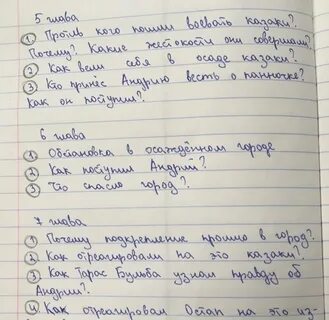 5 глава
1 Против кого пошли воевать казаки?
Почему? Какие жестокости они совершали?
2 Как вели себя в осаде казаки?
3 Кто принёс Андрию весть о панночке?
Как он поступил?
6 глава
1 Обстановка в осаждённом городе
2 Как поступил Андрий?
3 Что спасло город?
7 глава
1 Почему подкрепление прошло в город?
2 Как отреагировали на это казаки?
3 Как Тарас Бульба узнал правду об
Андрии?
4 Как отреагировал Остап на это из-